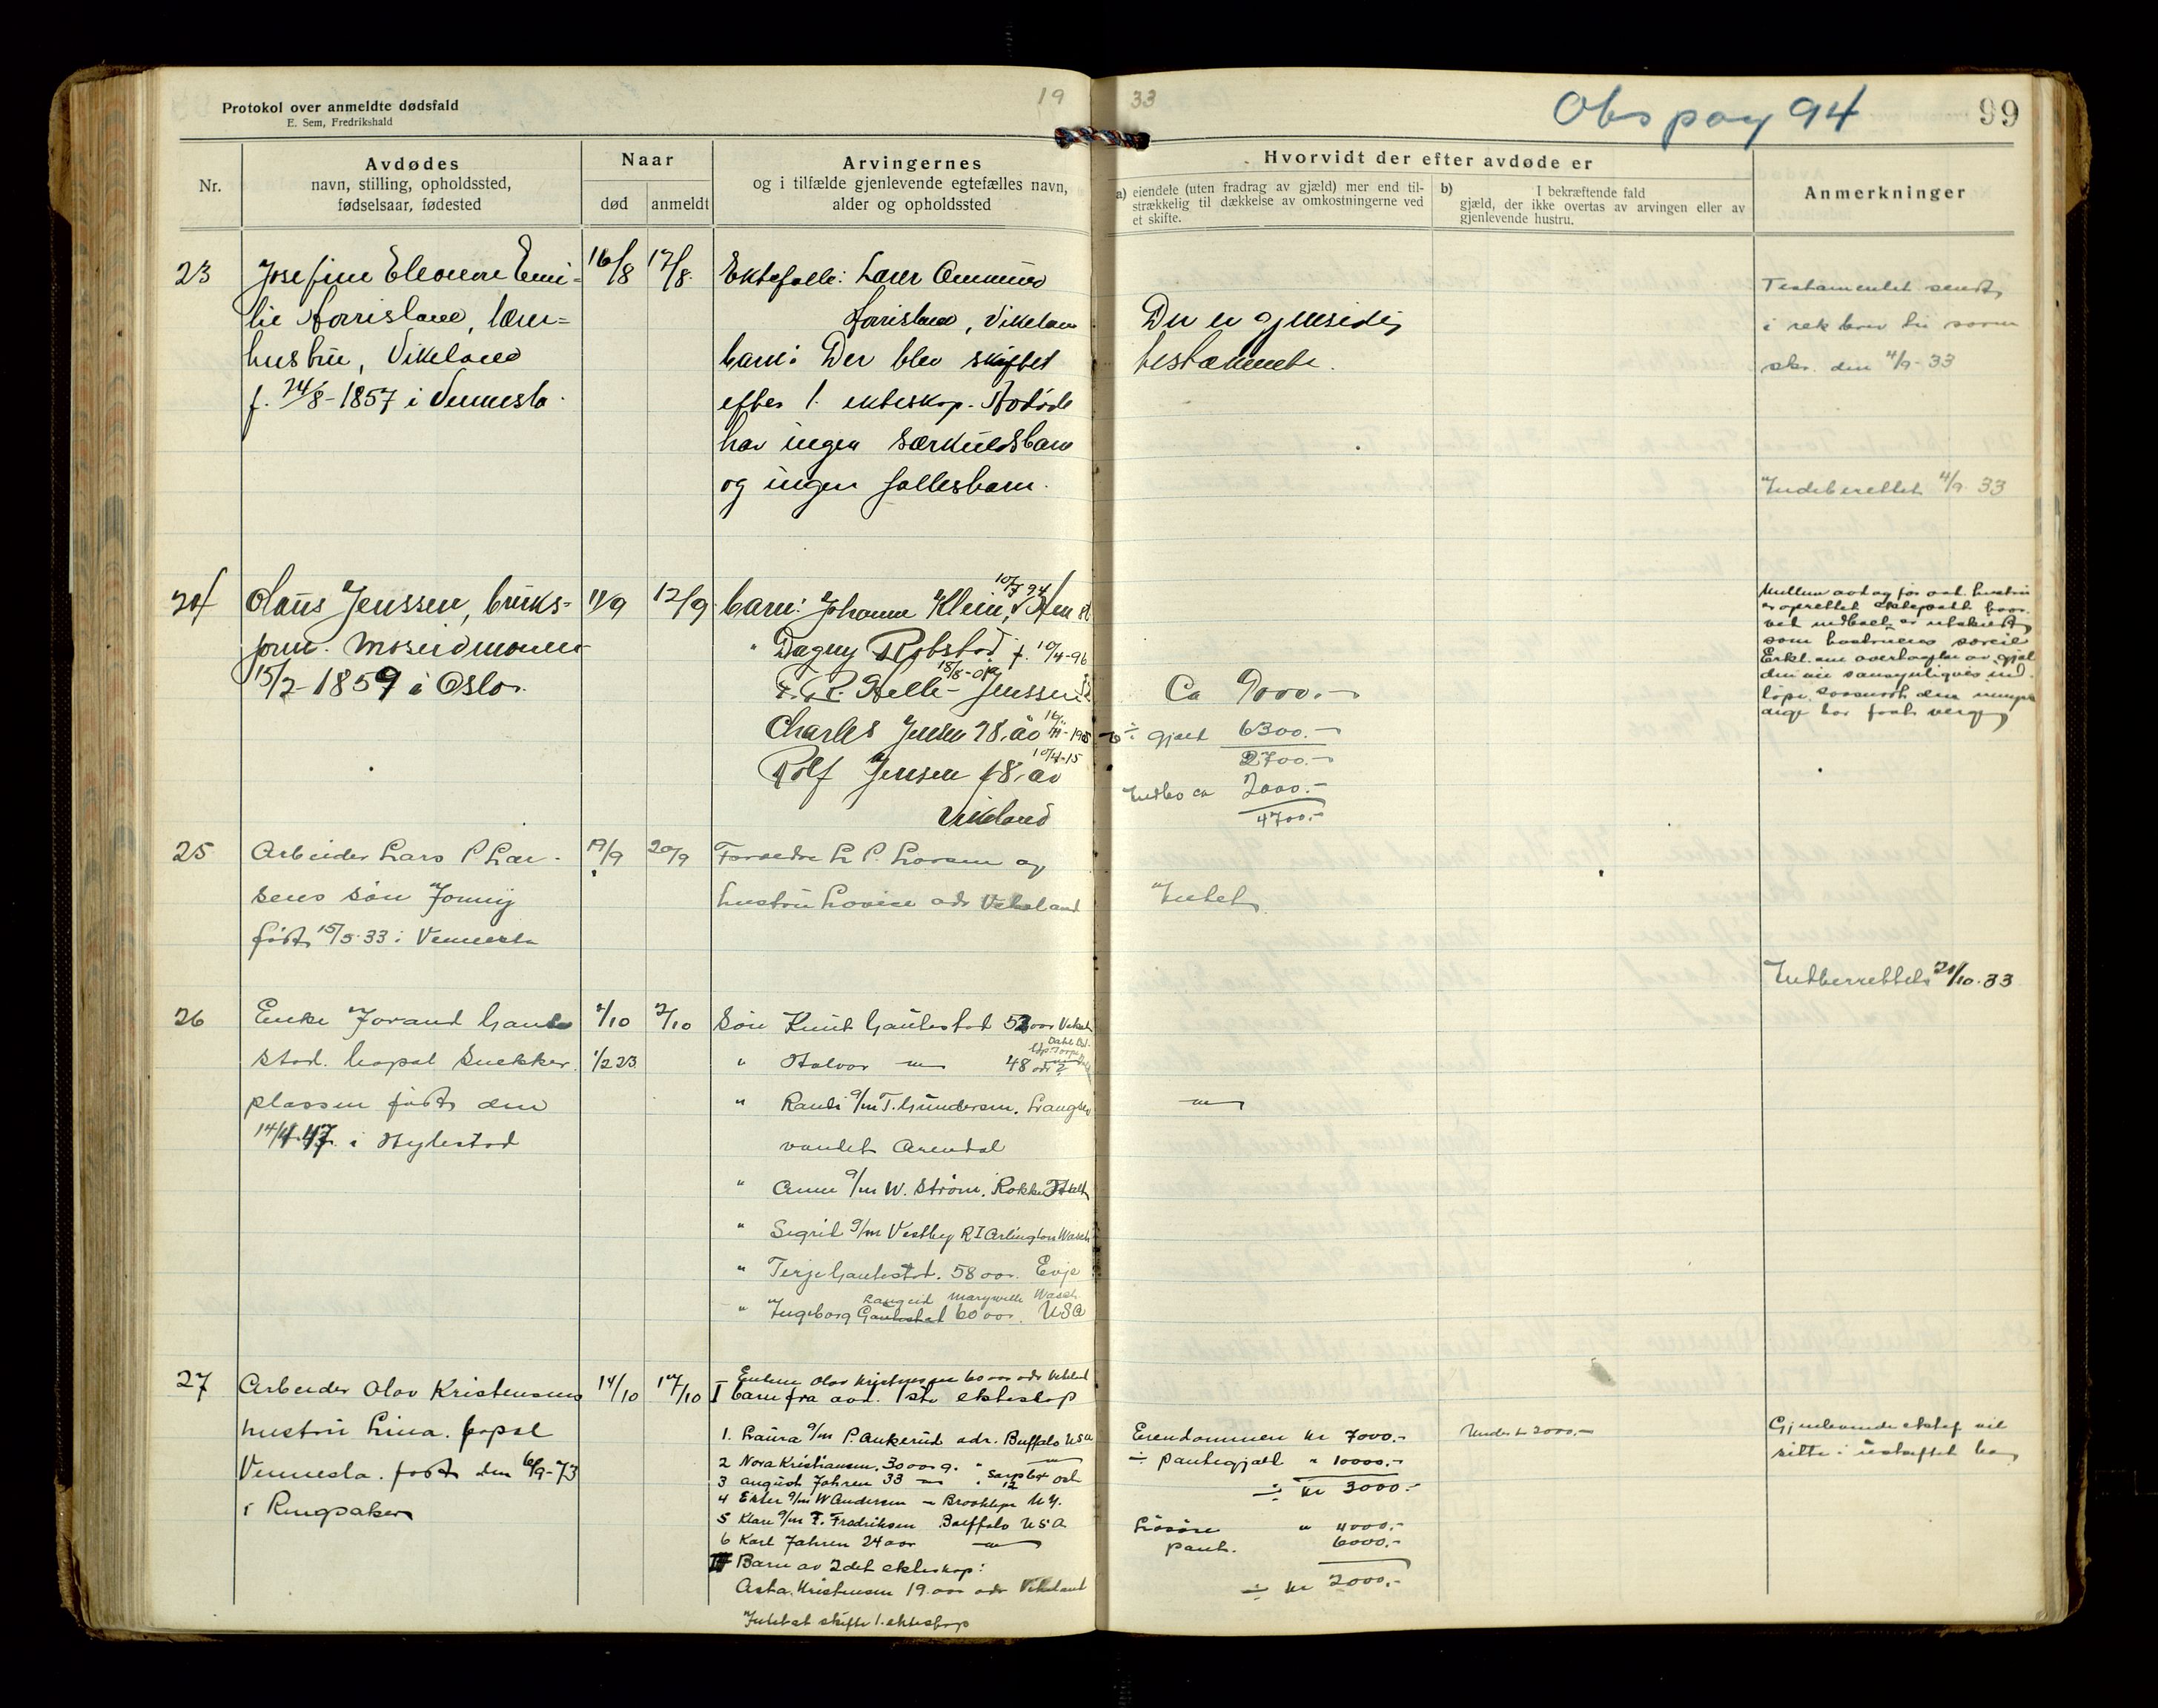 Protokol over anmeldte dødsfald
E. Sem, Fredrikshald
19
33
Obs pag 94
99
Nr.
Avdødes
navn, stilling, opholdssted,
fødselsaar, fødested
Naar
død
anmeldt
Arvingernes
og i tilfælde gjenlevende egtefælles navn,
alder og opholdssted
Hvorvidt der efter avdøde er
a) eiendele (uten fradrag av gjæld) mer end til-
strækkelig til dækkelse av omkostningerne ved
et skifte.
b) I bekræftende fald
gjæld, der ikke overtas av arvingen eller av
gjenlevende hustru.
Anmerkninger
23
Josefine Eleonore Emi-
lie Horrisland, lærer-
hustru, Vikeland
f. 24/8-1857 i Vennesla.
16/8
17/8.
Ektefælle: Lærer Ommund
Horrisland, Vikeland
barn: Der blev skiftet
efter 1. ekteskap. Avdøde
har ingen særkuldsbarn
og ingen fællesbarn.
Der er gjensidig
testamente.
Testamentet sendt
i rek brev til soren
skr. den 4/9-33
Indberettet 4/9 33
24
Olaus Jenssen, bruks-
form. Moseidmoen
15/2-1859 i Oslo.
11/9
12/9
barn: Johanne Klein,
10/7 94
" Dagny Robstad f. 10/4-96
Helle-Jenssen
Charles Jensen 28 år
Rolf Jensen 18 år
10/4-15
Vikeland
Ca 9000.-
÷ gjæld 6300.-
2700.-
Indbo ca 2000.-
4700.-
25
Arbeider Lars P Lar-
sens søn Jonny
født 15/5-33 i Vennesla
19/9
20/9
Forældre L P. Larsen og
hustru Lovise adr Vikeland
Intet
26
Enke Jorand Gaute
stad. bopæl Snekker
plassen født den
14/4 47. i Hylestad
2/10
2/10
1/2 23
Søn Knut Gautestad 52 aar
" Halvor — 48
" Randi g/m T. Gundersen. Langsæ
vandet Arendal
" Anne g/m W. Strøm.
" Sigrid g/m Vestby R I Arlington Wasch
" Terje Gautestad. 58 aar. Evje
Langeid Marysville Wasch
" Ingeborg Gautestad 60 aar. USA
—"—
Indberettet 21/10.33
27
Arbeider Olav Kristensens
hustru Lina. bopæl
Vennesla. født den 6/9-73
i Ringsaker
14/10
17/10
Enkem Olav Kristensen 60 aar adr Vikeland
I barn fra avd. 1ste ekteskap
1. Laura g/m P. Aukerud adr. Buffalo USA
2 Nora Kristiansen, 30 aar g. " —"—
3 August Jahren 33 —"—
4 Ester g/m W Andersen — Brooklyn N.Y.
5 Klara g/m F. Fredriksen Buffalo USA
6 Karl Jahren 24 aar —"—
II Barn av 2det ekteskap:
Asta Kristensen 19. aar adr Vikeland
Intet at skifte 1. ekteskap
Eiendommen kr 7000.-
÷ Pantegjæld " 10000.-
÷ kr 3000.-
Løsøre " 4000.-
pant. 6000.-
÷ kr 2000.-
Under 2000.-
Gjenlevende ektef vil
sitte i uskiftet bo